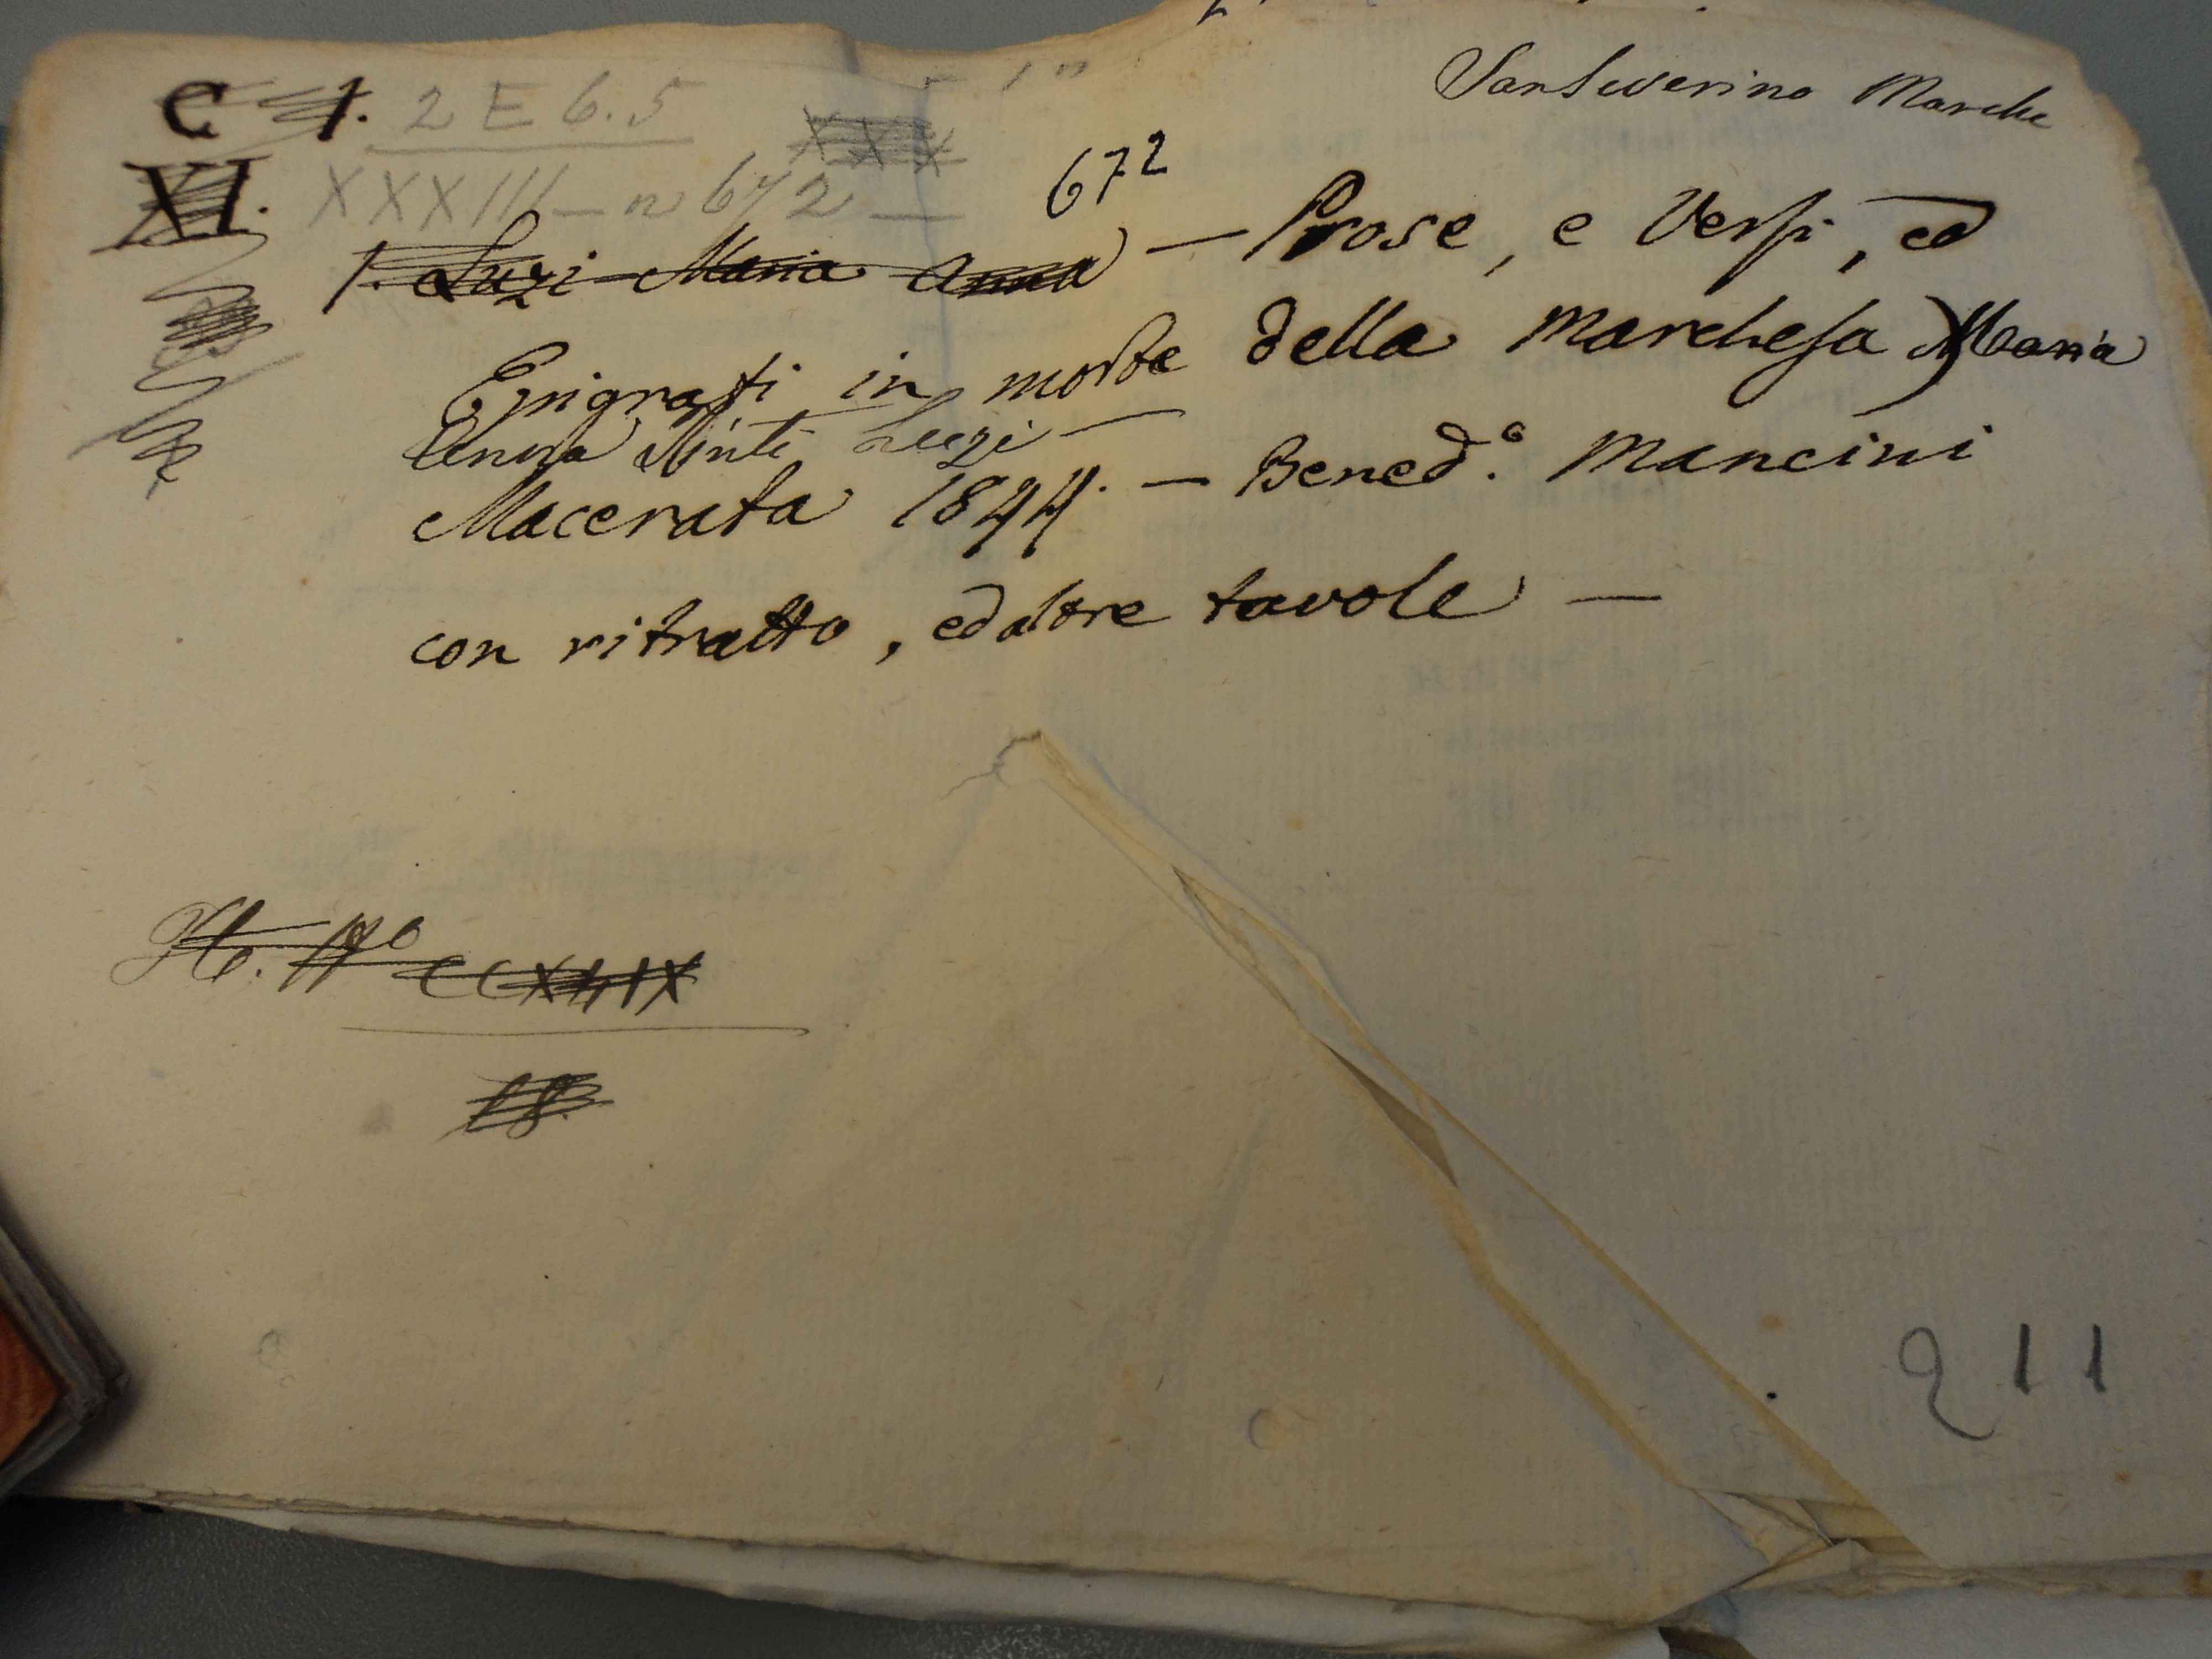 SanSeverino Marche
C 1. 2 E 6.5
XXX
XI. XXXIII — n 672 —
672
1. Luzi Maria Anna — Prose, e Versi, ed
Epigrafi in morte della Marchesa Maria
Anna Luzi —
Macerata 1844. — Bened.o Mancini
con ritratto, ed altre tavole —
No CCXLIX
18.
211